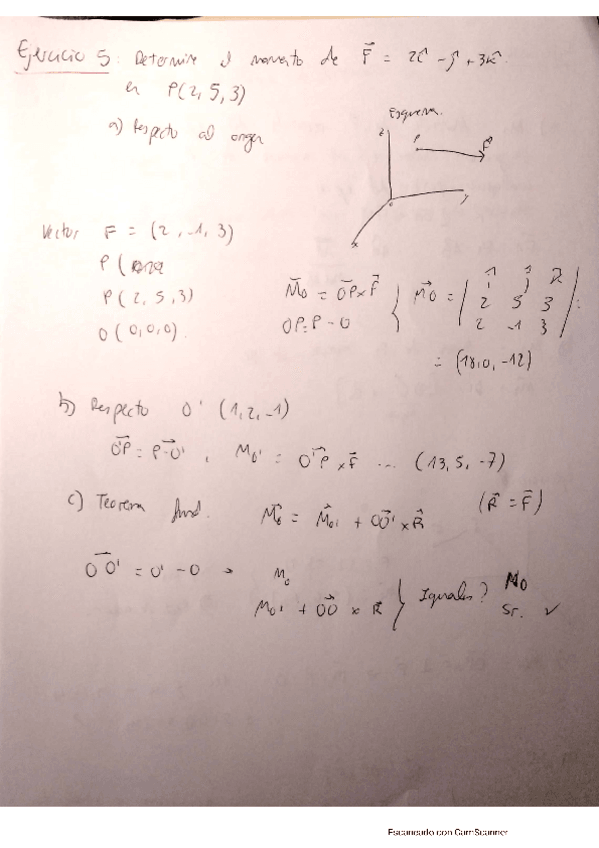 Ejercicio 5: Determine el momento de F⃗ = 2î - ĵ + 3k̂.
en P(2, 5, 3)
a) Respecto al origen
Esquema.
z
P
F⃗
o
y
x
Vector F = (2, -1, 3)
P (
P (2, 5, 3)
O (0,0,0).
M⃗o = O⃗P x F⃗
OP = P - O
} M⃗O = | î ĵ k̂ |
| 2 5 3 |
| 2 -1 3 | =
= (18, 0, -12)
b) Respecto O' (1, 2, -1)
O⃗'P = P - O' , Mo' = O'⃗P x F⃗ ... (13, 5, -7)
c) Teorema fund. M⃗o = M⃗o' + O⃗O' x R⃗ (R⃗ = F⃗)
O⃗O' = O' - O → Mo
Mo' + O⃗O x R⃗ } Iguales? NO
Si. ✓
Escaneado con CamScanner